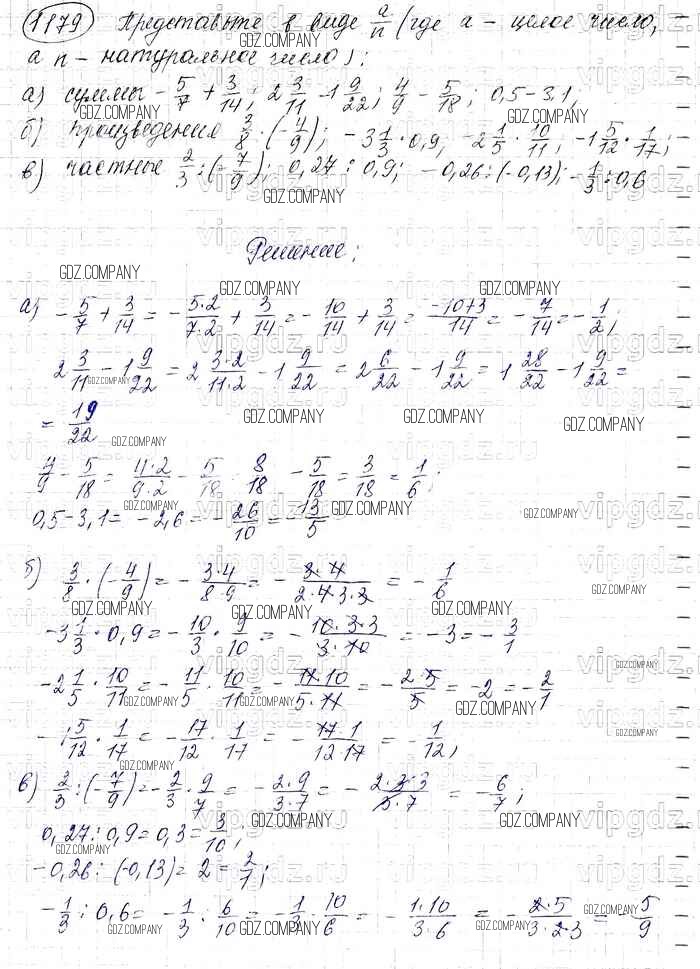 1179 Представьте в виде a/n (где a - целое число,
а n - натуральное число):
а) суммы -5/7 + 3/14; 2 3/11 - 1 9/22; 4/9 - 5/18; 0,5-3,1;
б) произведения 3/8 · (-4/9); -3 1/3 · 0,9; -2 1/5 · 10/11; -1 5/12 · 1/17;
в) частные 2/3 : (-7/9); 0,27 : 0,9; -0,26 : (-0,13); -1/3 : 0,6
Решение:
а) -5/7 + 3/14 = -5·2/7·2 + 3/14 = -10/14 + 3/14 = -10+3/14 = -7/14 = -1/2;
2 3/11 - 1 9/22 = 2 3·2/11·2 - 1 9/22 = 2 6/22 - 1 9/22 = 1 28/22 - 1 9/22 =
= 19/22
4/9 - 5/18 = 4·2/9·2 - 5/18 8/18 - 5/18 = 3/18 = 1/6;
0,5-3,1 = -2,6 = -26/10 = -13/5
б) 3/8 · (-4/9) = -3·4/8·9 = -3·4/2·4·3·3 = -1/6
-3 1/3 · 0,9 = -10/3 · 9/10 = -10·3·3/3·10 = -3 = -3/1
-2 1/5 · 10/11 = -11/5 · 10/11 = -11·10/5·11 = -2·5/5 = -2 = -2/1
-1 5/12 · 1/17 = -17/12 · 1/17 = -17·1/12·17 = -1/12;
в) 2/3 : (-7/9) = -2/3 · 9/7 = -2·9/3·7 = -2·3·3/3·7 = -6/7;
0,27 : 0,9 = 0,3 = 3/10;
-0,26 : (-0,13) = 2 = 2/1;
-1/3 : 0,6 = -1/3 : 6/10 = -1/3 · 10/6 = -1·10/3·6 = -2·5/3·2·3 = -5/9
GDZ.COMPANY
vipgdz.ru